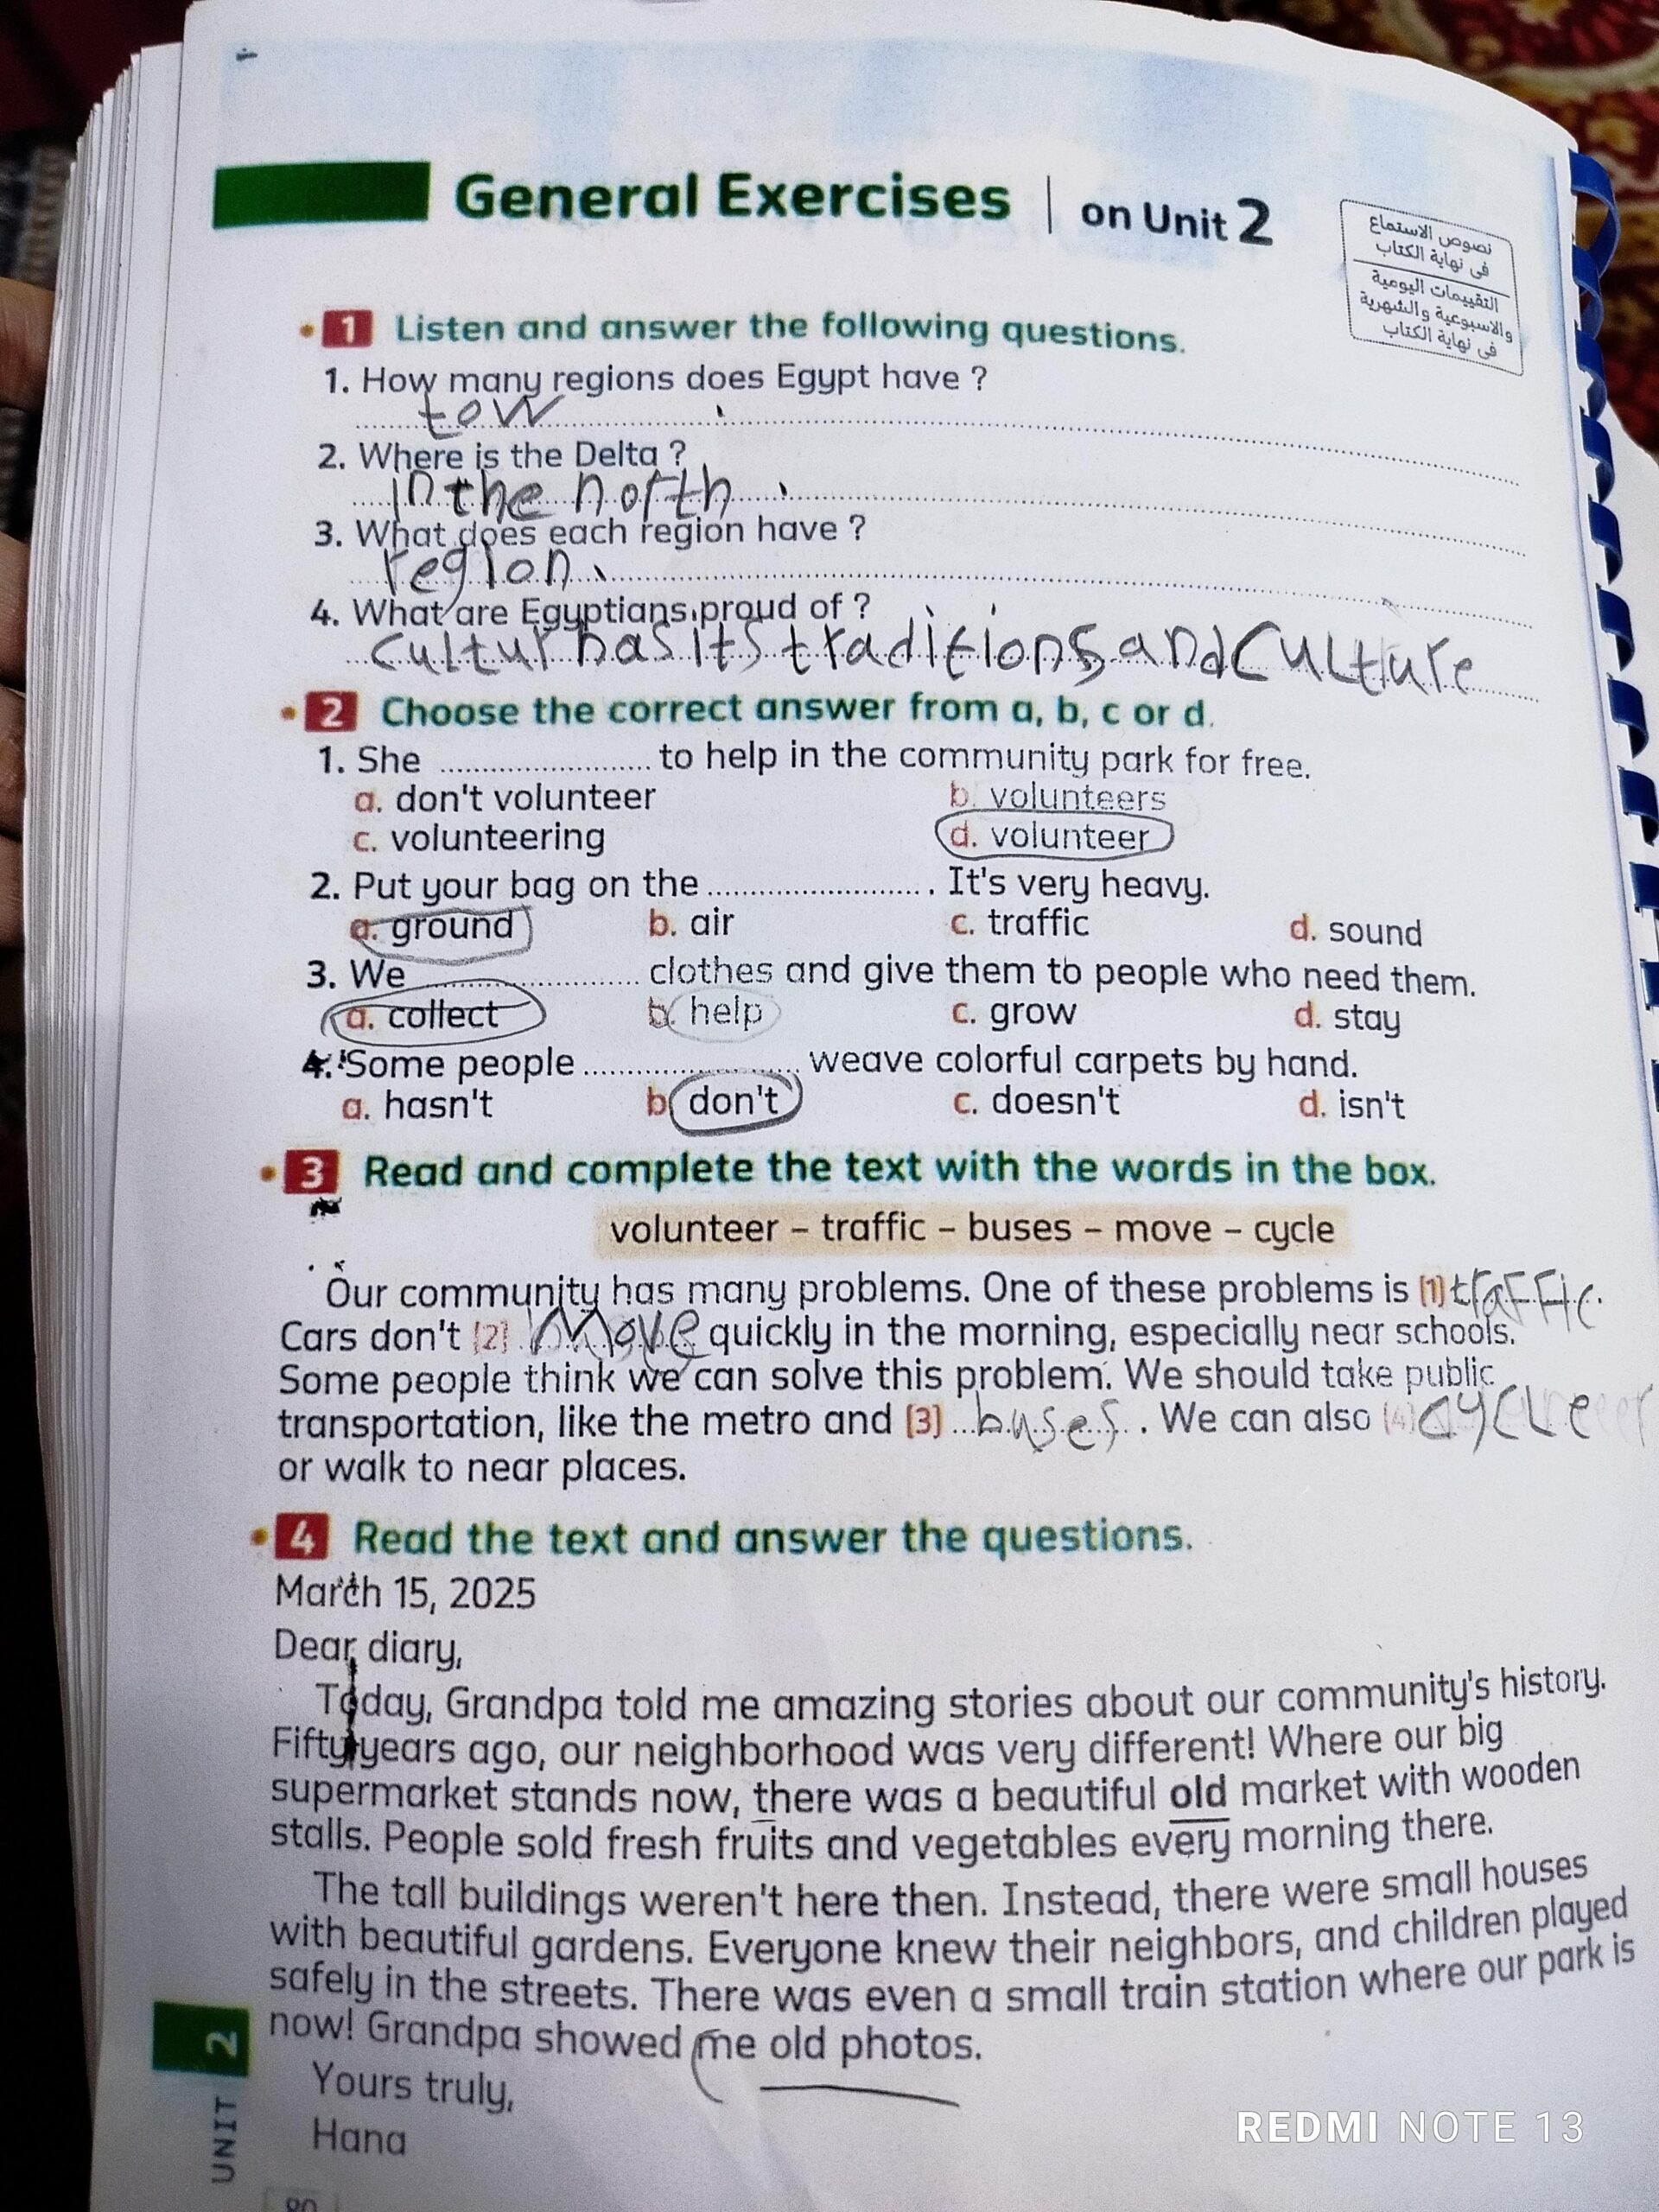 General Exercises | on Unit 2
نصوص الاستماع
فى نهاية الكتاب
التقييمات اليومية
والاسبوعية والشهرية
فى نهاية الكتاب
1 Listen and answer the following questions.
1. How many regions does Egypt have ?
tow
2. Where is the Delta ?
in the north .
3. What does each region have ?
region .
4. What are Egyptians proud of ?
cultur has its traditions and culture
2 Choose the correct answer from a, b, c or d.
1. She ........................ to help in the community park for free.
a. don't volunteer b. volunteers
c. volunteering d. volunteer
2. Put your bag on the ........................ . It's very heavy.
a. ground b. air c. traffic d. sound
3. We ........................ clothes and give them to people who need them.
a. collect b. help c. grow d. stay
4. Some people ........................ weave colorful carpets by hand.
a. hasn't b. don't c. doesn't d. isn't
3 Read and complete the text with the words in the box.
volunteer – traffic – buses – move – cycle
Our community has many problems. One of these problems is (1) traffic.
Cars don't (2) move quickly in the morning, especially near schools.
Some people think we can solve this problem. We should take public
transportation, like the metro and (3) buses . We can also (4) cycle
or walk to near places.
4 Read the text and answer the questions.
March 15, 2025
Dear diary,
Today, Grandpa told me amazing stories about our community's history.
Fifty years ago, our neighborhood was very different! Where our big
supermarket stands now, there was a beautiful old market with wooden
stalls. People sold fresh fruits and vegetables every morning there.
The tall buildings weren't here then. Instead, there were small houses
with beautiful gardens. Everyone knew their neighbors, and children played
safely in the streets. There was even a small train station where our park is
now! Grandpa showed me old photos.
Yours truly,
Hana
UNIT 2
REDMI NOTE 13